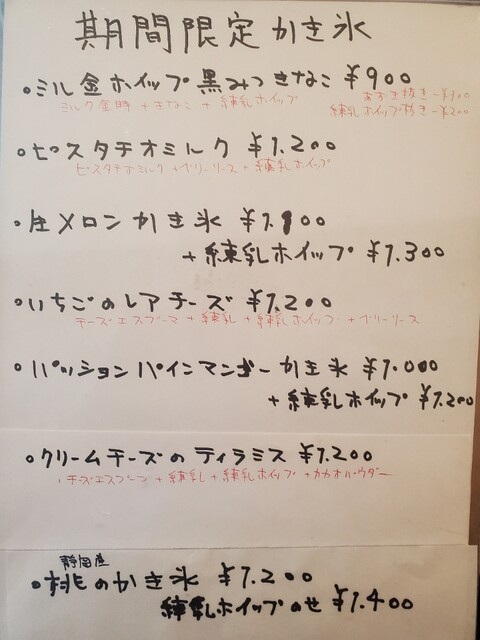 期間限定かき氷
・ミル金ホイップ黒みつきなこ ¥900
ミルク金時 + きなこ + 練乳ホイップ
あずき抜き -¥100
練乳ホイップ抜き -¥200
・ピスタチオミルク ¥1.200
ピスタチオミルク + ベリーソース + 練乳ホイップ
・生メロンかき氷 ¥1.100
+ 練乳ホイップ ¥1.300
・いちごのレアチーズ ¥1.200
チーズエスプーマ + 練乳 + 練乳ホイップ + ベリーソース
・パッションパインマンゴーかき氷 ¥1.000
+ 練乳ホイップ ¥1.200
・クリームチーズのティラミス ¥1.200
チーズエスプーマ + 練乳 + 練乳ホイップ + カカオパウダー
静岡産
・桃のかき氷 ¥1.200
練乳ホイップのせ ¥1.400